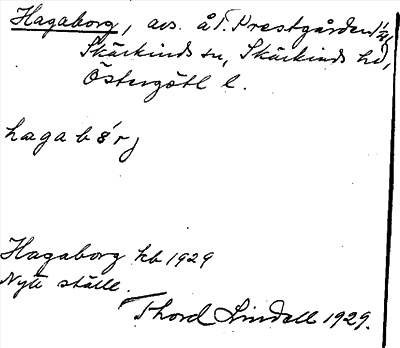 Hagaborg, avs. å T. Prestgården 1/4,
Skärkinds sn, Skärkinds hd,
Östergötl l.
hagabǒrj
Hagaborg kb 1929
Nytt ställe.
Thord Lindell 1929.